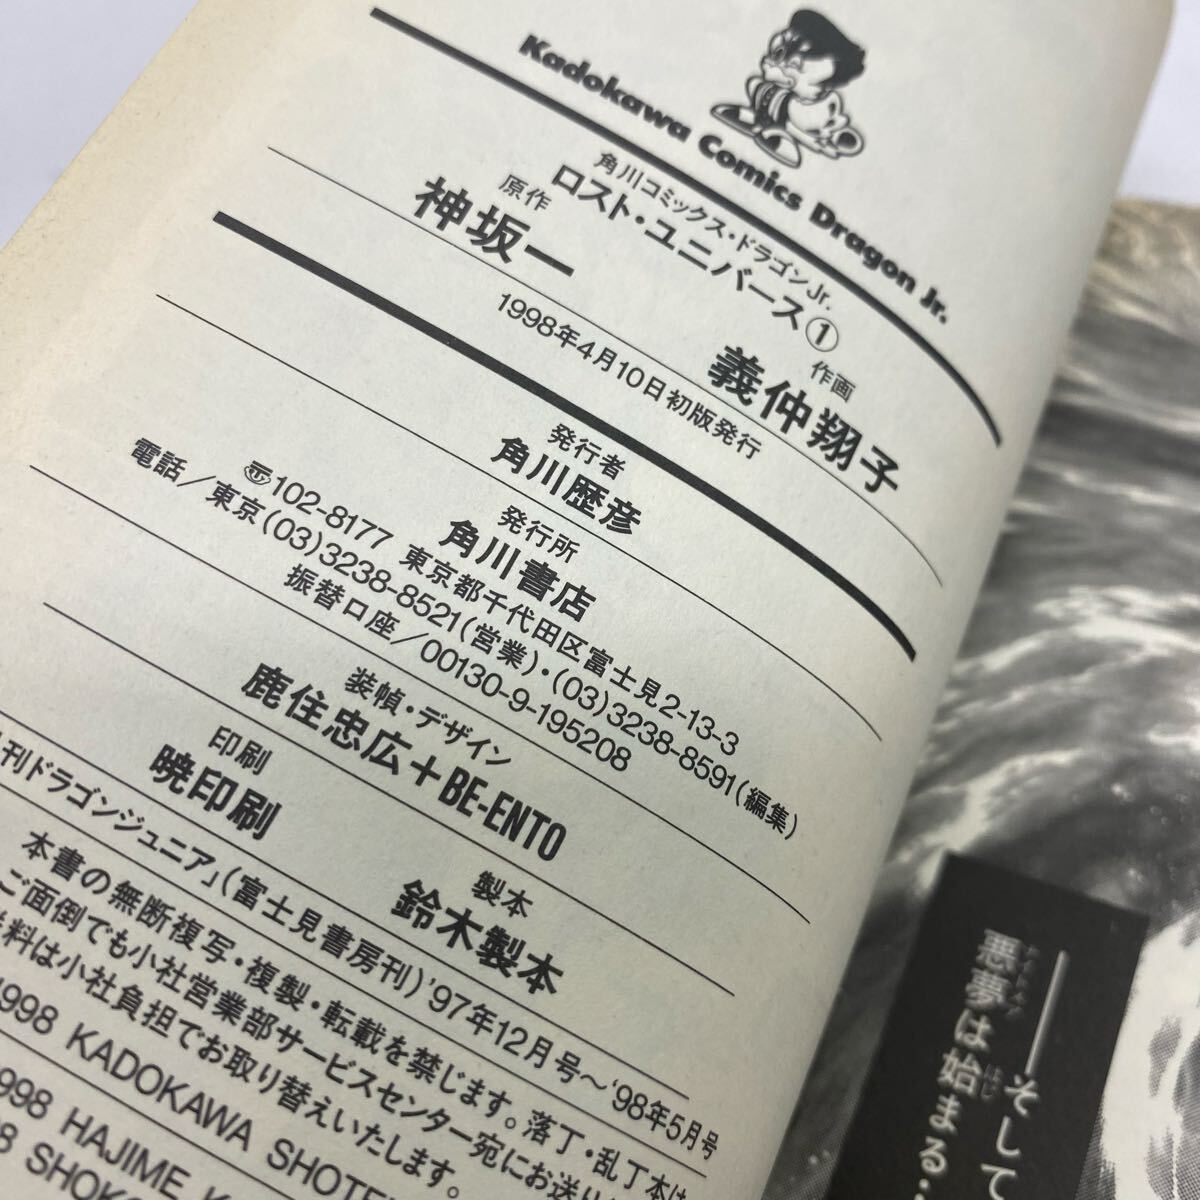 Kadokawa Comics Dragon Jr.
角川コミックス・ドラゴンJr.
ロスト・ユニバース①
原作
神坂一
作画
義仲翔子
1998年4月10日初版発行
発行者
角川歴彦
発行所
角川書店
〠102-8177 東京都千代田区富士見2-13-3
電話/東京(03)3238-8521(営業)・(03)3238-8591(編集)
振替口座/00130-9-195208
装幀・デザイン
鹿住忠広+BE-ENTO
印刷
暁印刷
製本
鈴木製本
刊ドラゴンジュニア」(富士見書房刊)'97年12月号~'98年5月号
本書の無断複写・複製・転載を禁じます。落丁・乱丁本は
ご面倒でも小社営業部サービスセンター宛にお送り
料は小社負担でお取り替えいたします。
1998 KADOKAWA SHOTE
998 HAJIME K
8 SHOKO
──そして
悪夢は始まる‥